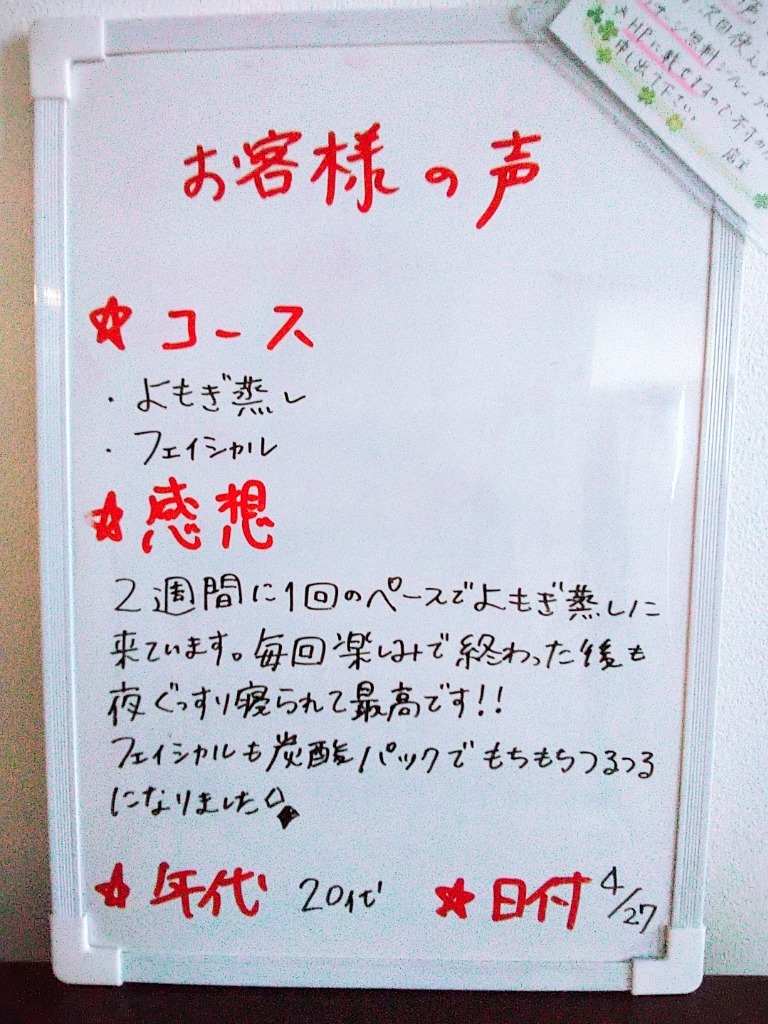 お客様の声
☆コース
・よもぎ蒸し
・フェイシャル
☆感想
2週間に1回のペースでよもぎ蒸しに
来ています。毎回楽しみで終わった後も
夜ぐっすり寝られて最高です!!
フェイシャルも炭酸パックでもちもちつるつる
になりました
☆年代 20代 ☆日付 4/27
次回使え
無料
☆HPに載せるので
申し出下さい。
店主